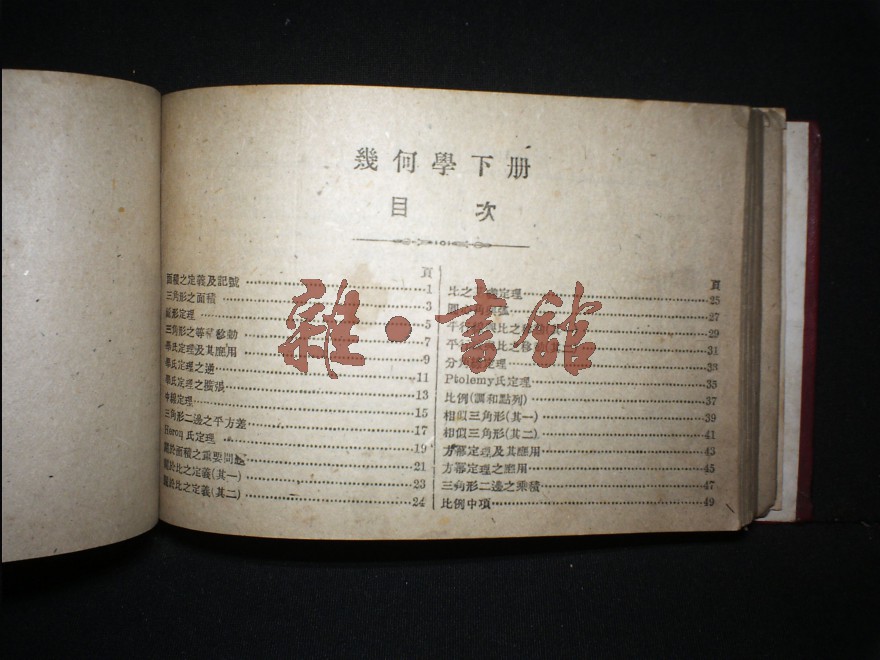 幾何學下册
目次
頁
面積之定義及記號 1
三角形之面積 3
形定理 5
三角形之等積移動 7
畢氏定理及其應用 9
畢氏定理之逆 11
畢氏定理之擴張 13
中線定理 15
三角形二邊之平方差 17
Heron氏定理 19
關於面積之重要問題 21
關於比之定義(其一) 23
關於比之定義(其二) 24
頁
比之 定理 25
圓 角 弧 27
平行 比之移 29
平行 比之移 (其二) 31
分角 定理 33
Ptolemy氏定理 35
比例(調和點列) 37
相似三角形(其一) 39
相似三角形(其二) 41
方冪定理及其應用 43
方冪定理之應用 45
三角形二邊之乘積 47
比例中項 49
雜·書館